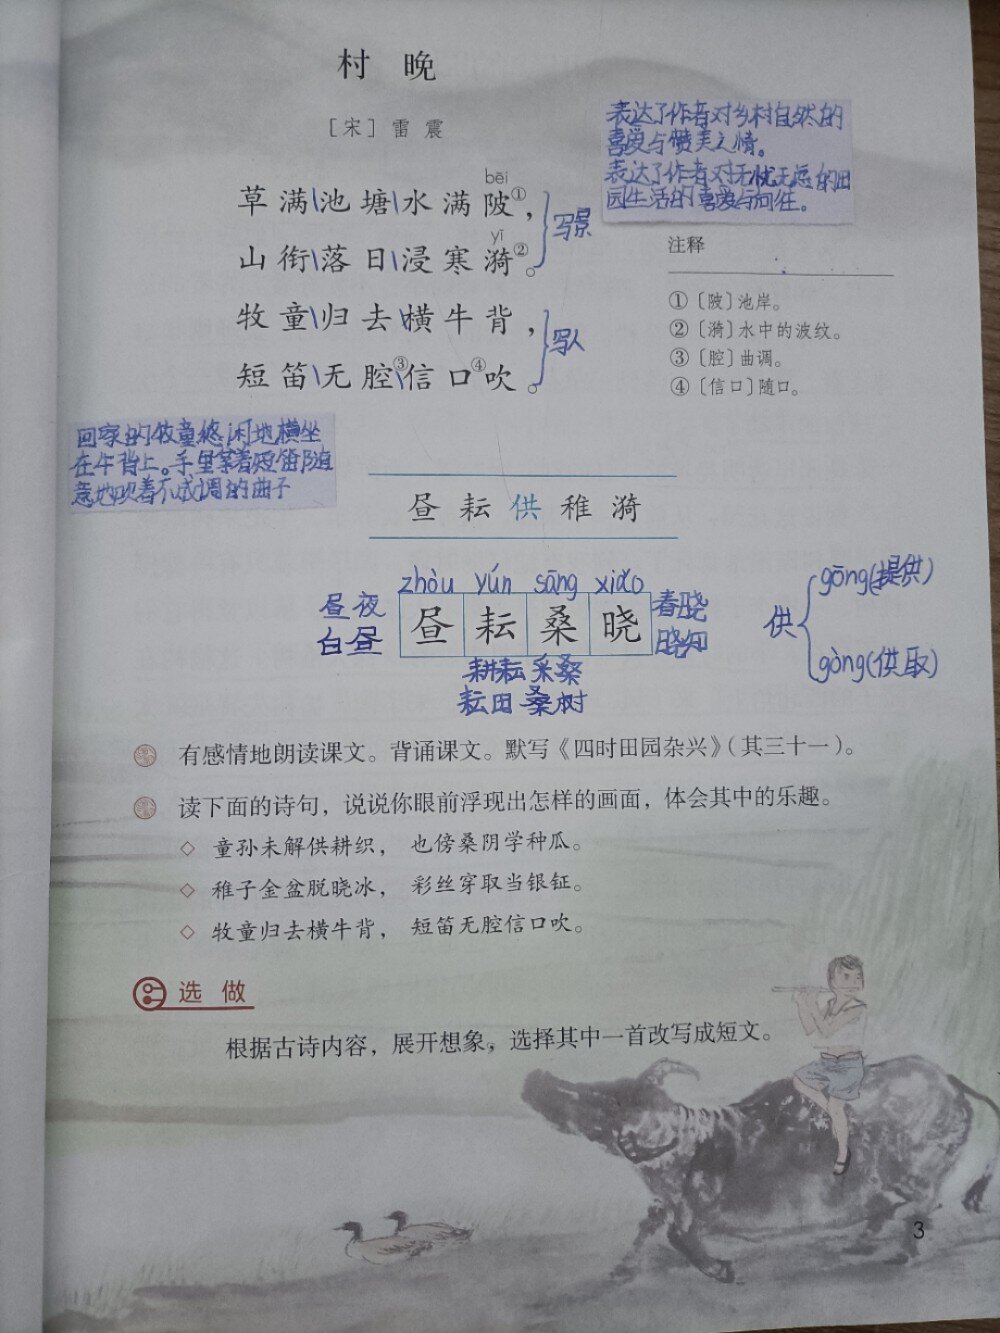 村 晚
[宋] 雷 震
表达了作者对乡村自然的
喜爱与赞美之情。
表达了作者对无忧无虑的田
园生活的喜爱与向往。
bēi
草满\池塘\水满陂①，
yī
山衔\落日\浸寒漪②。
写景
牧童\归去\横牛背，
短笛\无腔③\信口④吹。
写人
注释
①〔陂〕池岸。
②〔漪〕水中的波纹。
③〔腔〕曲调。
④〔信口〕随口。
回家的牧童悠闲地横坐
在牛背上。手里拿着短笛随
意地吹着不成调的曲子
昼 耘 供 稚 漪
zhòu yún sāng xiǎo
昼夜 昼 耘 桑 晓 春晓
白昼 晓知
耕耘 采桑
耘田 桑树
供 gōng(提供)
gòng(供取)
有感情地朗读课文。背诵课文。默写《四时田园杂兴》（其三十一）。
读下面的诗句，说说你眼前浮现出怎样的画面，体会其中的乐趣。
◇ 童孙未解供耕织， 也傍桑阴学种瓜。
◇ 稚子金盆脱晓冰， 彩丝穿取当银钲。
◇ 牧童归去横牛背， 短笛无腔信口吹。
选 做
根据古诗内容，展开想象，选择其中一首改写成短文。
3